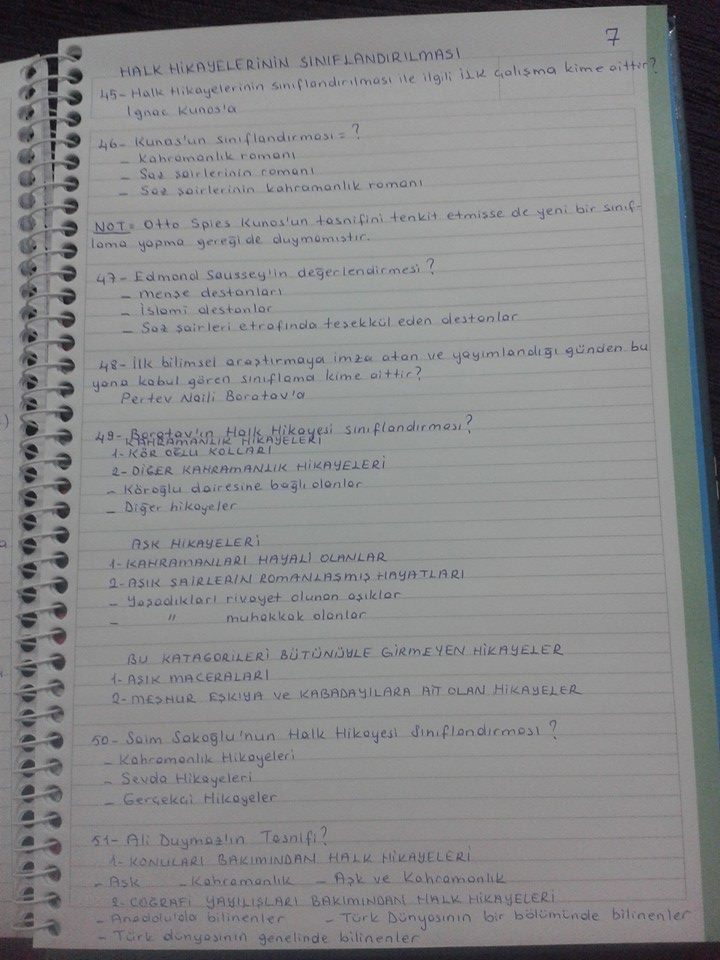 7
HALK HİKAYELERİNİN SINIFLANDIRILMASI
45- Halk Hikayelerinin sınıflandırılması ile ilgili İLK çalışma kime aittir?
Ignac Kunos'a
46- Kunos'un sınıflandırması = ?
- Kahramanlık romanı
- Saz şairlerinin romanı
- Saz şairlerinin kahramanlık romanı
NOT= Otto Spies Kunos'un tasnifini tenkit etmişse de yeni bir sınıf-
lama yapma gereği de duymamıştır.
47- Edmond Saussey'in değerlendirmesi?
- menşe destanları
- İslami destanlar
- Saz şairleri etrafında teşekkül eden destanlar
48- İlk bilimsel araştırmaya imza atan ve yayımlandığı günden bu
yana kabul gören sınıflama kime aittir?
Pertev Naili Boratav'a
49- Boratav'ın Halk Hikayesi sınıflandırması?
KAHRAMANLIK HİKAYELERİ
1- KÖR OĞLU KOLLARI
2- DİĞER KAHRAMANLIK HİKAYELERİ
- Köroğlu dairesine bağlı olanlar
- Diğer hikayeler
AŞK HİKAYELERİ
1- KAHRAMANLARI HAYALİ OLANLAR
2- AŞIK ŞAİRLERİN ROMANLAŞMIŞ HAYATLARI
- Yaşadıkları rivayet olunan aşıklar
- " muhakkak olanlar
BU KATAGORİLERİ BÜTÜNÜYLE GİRMEYEN HİKAYELER
1- AŞIK MACERALARI
2- MEŞHUR EŞKIYA ve KABADAYILARA AİT OLAN HİKAYELER
50- Saim Sakoğlu'nun Halk Hikayesi Sınıflandırması?
- Kahramanlık Hikayeleri
- Sevda Hikayeleri
- Gerçekçi Hikayeler
51- Ali Duymaz'ın Tasnifi?
1- KONULARI BAKIMINDAN HALK HİKAYELERİ
- Aşk - Kahramanlık - Aşk ve Kahramanlık
2- COĞRAFİ YAYILIŞLARI BAKIMINDAN HALK HİKAYELERİ
- Anadoluda bilinenler - Türk Dünyasının bir bölümünde bilinenler
- Türk dünyasının genelinde bilinenler